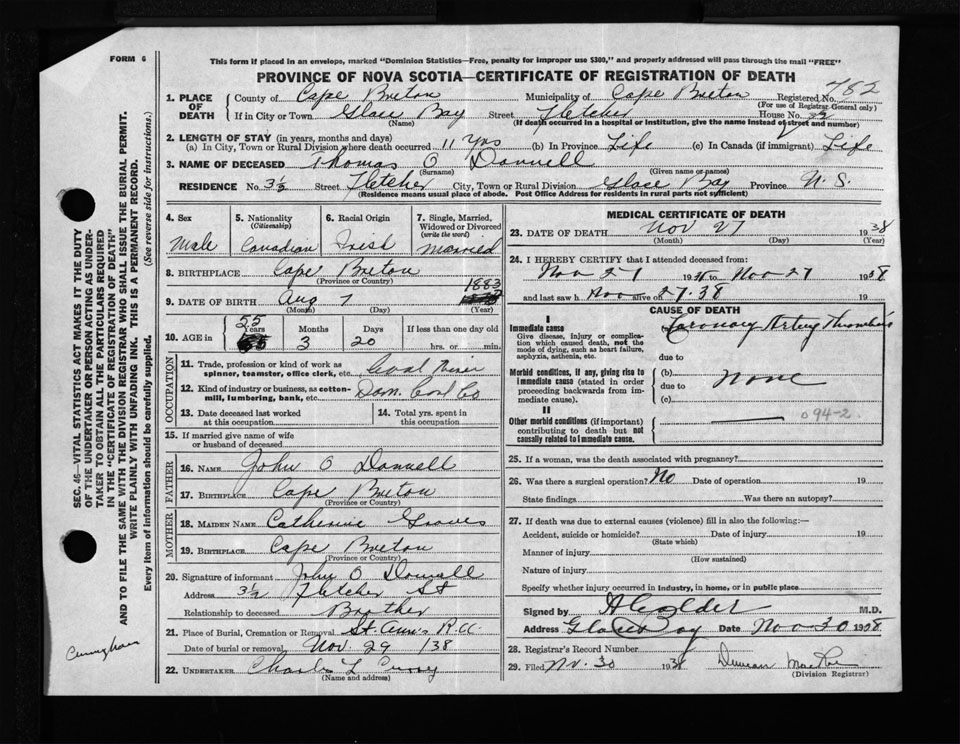 FORM 6
This form if placed in an envelope, marked "Dominion Statistics—Free, penalty for improper use $300," and properly addressed will pass through the mail "FREE"
PROVINCE OF NOVA SCOTIA—CERTIFICATE OF REGISTRATION OF DEATH
782
1. PLACE OF DEATH County of Cape Breton Municipality of Cape Breton Registered No.
(For use of Registrar General only)
If in City or Town Glace Bay Street Fletcher House No. 3½
(Name) (If death occurred in a hospital or institution, give the name instead of street and number)
2. LENGTH OF STAY (in years, months and days)
(a) In City, Town or Rural Division where death occurred 11 Yrs (b) In Province Life (c) In Canada (if immigrant) Life
3. NAME OF DECEASED Thomas O Donnell
(Surname) (Given name or names)
RESIDENCE No. 3½ Street Fletcher City, Town or Rural Division Glace Bay Province N. S.
(Residence means usual place of abode. Post Office Address for residents in rural parts not sufficient)
4. Sex Male
5. Nationality (Citizenship) Canadian
6. Racial Origin Irish
7. Single, Married, Widowed or Divorced (write the word) Married
8. BIRTHPLACE Cape Breton
(Province or Country)
9. DATE OF BIRTH Aug 7 1883
(Month) (Day) (Year)
10. AGE in 55 Years 3 Months 20 Days If less than one day old
hrs. or min.
OCCUPATION
11. Trade, profession or kind of work as spinner, teamster, office clerk, etc. Coal Miner
12. Kind of industry or business, as cotton-mill, lumbering, bank, etc. Dom. Coal Co
13. Date deceased last worked at this occupation
14. Total yrs. spent in this occupation
15. If married give name of wife or husband of deceased
FATHER
16. NAME John O Donnell
17. BIRTHPLACE Cape Breton
(Province or Country)
MOTHER
18. MAIDEN NAME Catherine Groves
19. BIRTHPLACE Cape Breton
(Province or Country)
20. Signature of informant John O Donnell
Address 3½ Fletcher St
Relationship to deceased Brother
21. Place of Burial, Cremation or Removal St. Ann's R.C.
Date of burial or removal Nov. 29 /38
22. UNDERTAKER Charles L Curry
(Name and address)
MEDICAL CERTIFICATE OF DEATH
23. DATE OF DEATH Nov 27 1938
(Month) (Day) (Year)
24. I HEREBY CERTIFY that I attended deceased from:
Nov 27 1938 to Nov 27 1938
and last saw h alive on Nov 27.38 19
CAUSE OF DEATH
I
Immediate cause
Give disease, injury or complication which caused death, not the mode of dying, such as heart failure, asphyxia, asthenia, etc.
Coronary Artery Thrombosis
due to
Morbid conditions, if any, giving rise to immediate cause (stated in order proceeding backwards from immediate cause).
(b)
due to None
(c)
094-2
II
Other morbid conditions (if important) contributing to death but not causally related to immediate cause.
25. If a woman, was the death associated with pregnancy?
26. Was there a surgical operation? No Date of operation 19
State findings Was there an autopsy?
27. If death was due to external causes (violence) fill in also the following:—
Accident, suicide or homicide? Date of injury 19
(State which)
Manner of injury
(How sustained)
Nature of injury
Specify whether injury occurred in industry, in home, or in public place
Signed by A Calder M.D.
Address Glace Bay Date Nov 30 1938
28. Registrar's Record Number
29. Filed Nv. 30 1938 Duncan
(Division Registrar)
SEC. 46—VITAL STATISTICS ACT MAKES IT THE DUTY
OF THE UNDERTAKER OR PERSON ACTING AS UNDER-
TAKER TO OBTAIN ALL THE PARTICULARS REQUIRED
IN THE "CERTIFICATE OF REGISTRATION OF DEATH"
AND TO FILE THE SAME WITH THE DIVISION REGISTRAR WHO SHALL ISSUE THE BURIAL PERMIT.
WRITE PLAINLY WITH UNFADING INK. THIS IS A PERMANENT RECORD.
Every item of information should be carefully supplied. (See reverse side for instructions.)